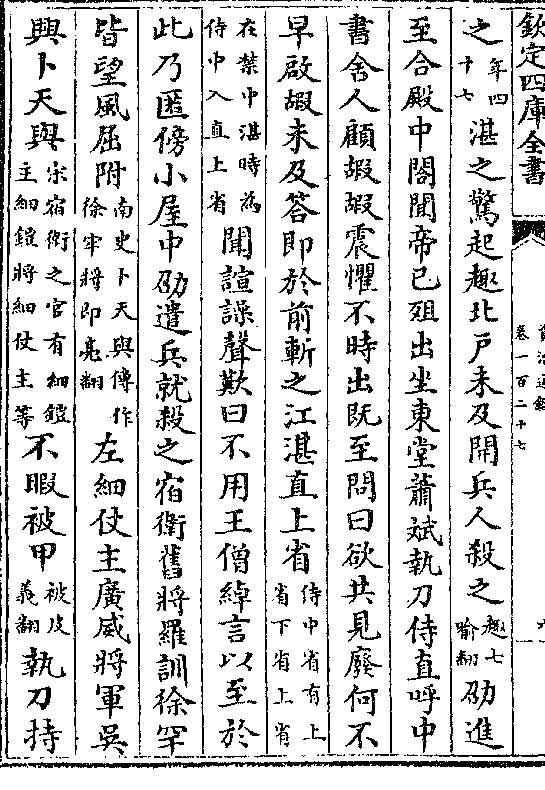 欽定四庫全書
資治通鑑
卷一百二十七
六
之年四十七湛之驚起趣北戶未及開兵人殺之趣七喻翻劭進
至合殿中閤聞帝已殂出坐東堂蕭斌執刀侍直呼中
書舍人顧嘏嘏震懼不時出既至問曰欲共見廢何不
早啟嘏未及答即於前斬之江湛直上省侍中省有上省下省上省
在禁中湛時為侍中入直上省聞諠譟聲歎曰不用王僧綽言以至於
此乃匿傍小屋中劭遣兵就殺之宿衛舊將羅訓徐罕
皆望風屈附南史卜天與傳作徐牢將即亮翻左細仗主廣威將軍吳
興卜天與宋宿衛之官有細鎧主細鎧將細仗主等不暇被甲被皮義翻執刀持